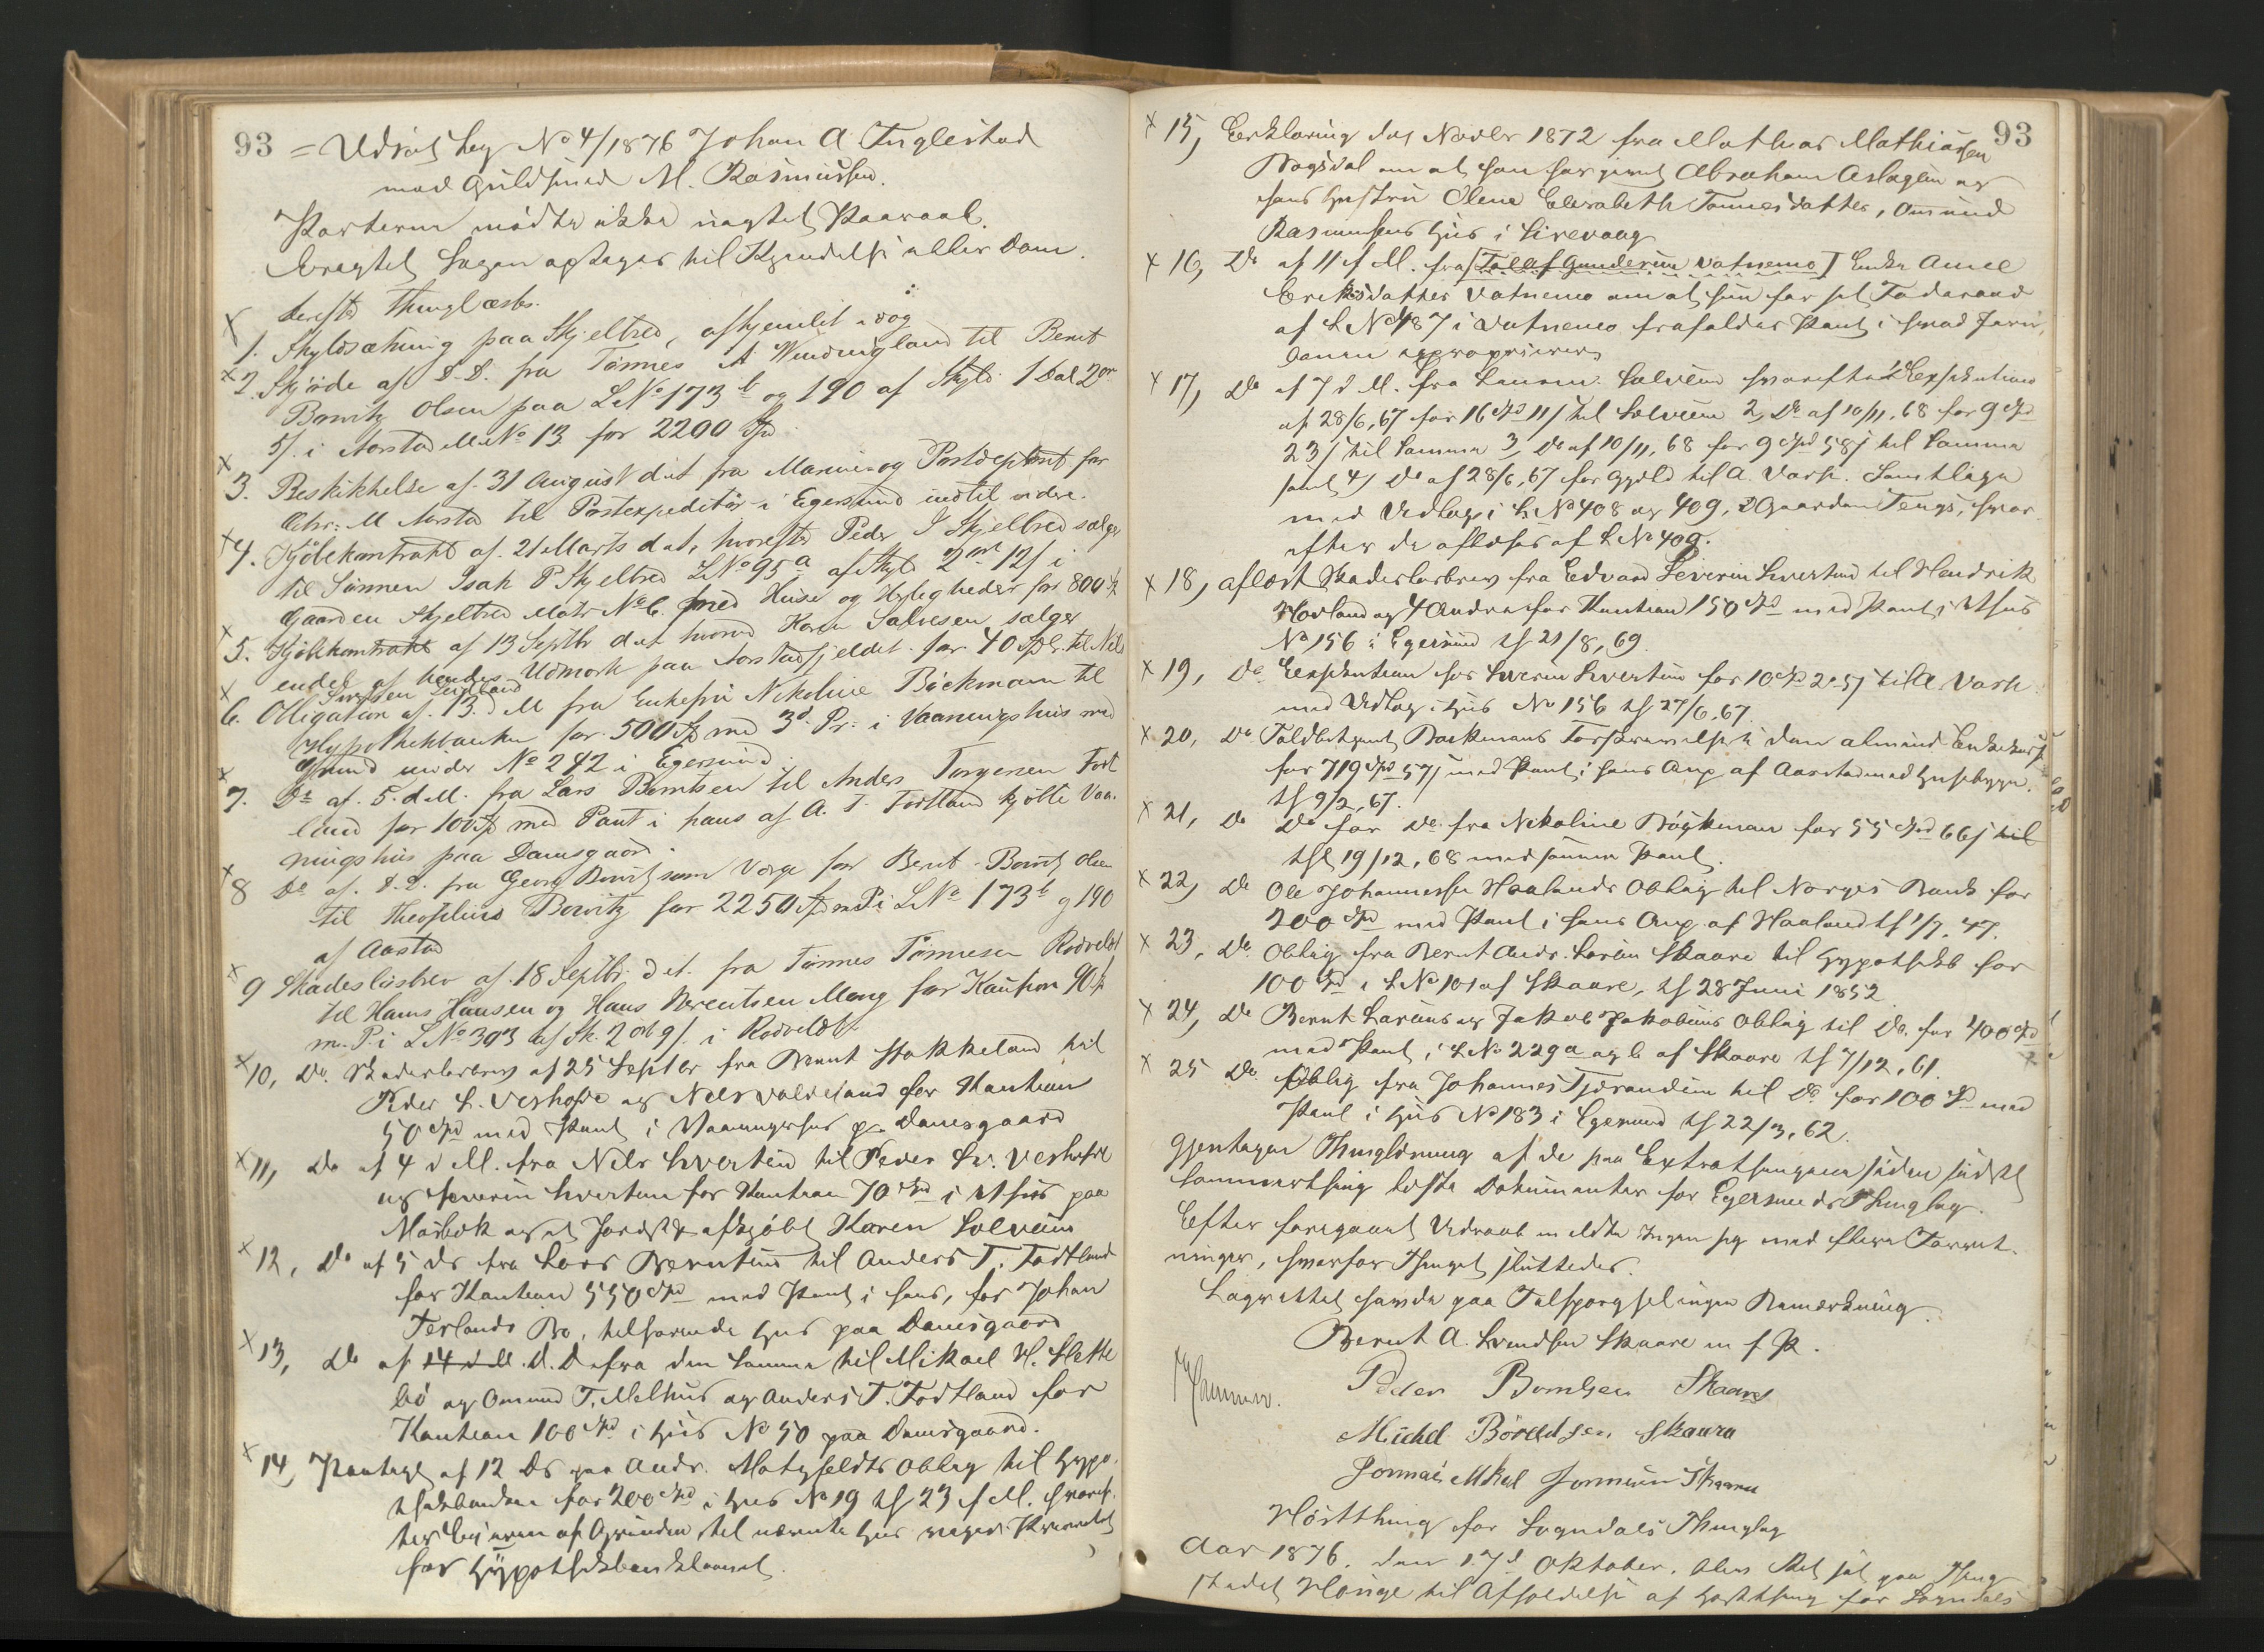 93 = Udsat Sag No 4/1876 Johan A Fuglestad
mod Guldsmed M. Rasmussen.
Parterne mødte ikke uagtet Paaraab.
Eragtet Sagen optages til Kjendelse eller Dom.
derefter Thinglæstes.
1. Skyldsætning paa Skjelbred, afhjemlet i dag
2. Skjøde af D.D. fra Tønnes A Windingland til Bernt
Bowitz Olsen paa LNo 173 b og 190 af Skyld 1 Dal 2 Ort
5/. i Aarstad MNo 13 for 2200 Spd
3. Beskikkelse af 31 August d.A. fra Marine og Postdeptmt for
Chr: M Aarstad til Postexpeditør i Egersund indtil videre.
4. Kjøbekontrakt af 21 Marts d.A., hvorefter Peder I Skjelbred sælger
til Sønnen Isak P Skjelbred LNo 95 a af Skyld 2 m 12/ i
Gaarden Skjelbred Matr No 6. med Huse og Herligheder for 800
5. Kjøbekontrakt af 13 Septbr d A hvorved Karen Salvesen sælger
endel af hendes Udmark paa Aarstadfjeldet for 40 Spd. til Nils
Svendsen
6. Obligation af 13. d M fra Enkefru Nikoline Böckmann til
Hypothekbanken for 500 Spd med 3d. Pr. i Vaaningshus med
Grund under No 242 i Egersund
7. Do af 5. d.M. fra Lars Berntsen til Anders Torgersen Fot
land for 100 Spd med Pant i hans af A. T. Fotland kjøbte Vaa-
ningshus paa Damsgaard.
8 Do af. D.D. fra Georg Bowitz som Værge for Bernt Bowitz Olsen
til Theofilius Bowitz for 2250 Spd m P. i LNo 173 b og 190
af Aastad
9 Skadesløsbrev af 18 Septbr. d A. fra Tønnes Tønnesen Rodvelt
til Hans Hansen og Hans Berentsen Mong for Kaution 90
m. P. i LNo 303 af Sk. 2 ort 9/. i Rodvelt.
10, Do. Skadesløsbrev af 25 Septbr fra Bernt Stokkeland til
Peder L. Veshovde og Nils Valveland for Kaution
50 Spd med Pant i Vaaningshus p. Damsgaard
11, Do af 4 d M. fra Nils Svertsen til Peder Sv. Veshovde
og Severin Svertsen for Kaution 70 Spd i Hus paa
Mosbæk og et Jordst. afkjøbt Karen Solveün
12, Do af 5 Ds fra Lars Berntsen til Anders T. Fodtland
for Kaution 550 Spd med Pant i hans, for Johan
Terlands Bo, tilhørende Hus paa Damsgaard
13, Do af 14 d M. D.D. fra den samme til Mikael H. Slette
bø og Omund T. Melhus og Anders T. Fodtland for
Kaution 100 Spd i Hus No 50 paa Damsgaard.
14, Paategn af 12 Ds paa Andr. Motzfeldts Oblig til Hypo-
thekbanken for 200 Spd i Hus No 19 th 23 f M. hvoref-
ter Eieren af Grunden til nævnte Hus viger Prioritet
for Hypothekbanklaanet.
93
15, Erklæring Ds Novbr 1872 fra Mathias Mathiassen
Dogsdal om at han har givet Abraham Aslagsen og
hans Hustru Olene Elisabeth Tønnesdatter, Omund
Rasmussens Hus i Sirevaag
16, Do af 11 f M. fra [Tollef Gundersen Vatnemo] Enke Anne
Eriksdatter Vatnemo om at hun for sit Føderaad
af LNo 187 i Vatnemo frafalder Pant i hvad Jern-
banen expropriere
17, Do af 7 d M. fra Lauren. Salvesen hvorefter 1 Do Exsekution
af 28/6, 67 for 16 Spd 11/ til Salvesen 2, Do af 10/11, 68 for 9 Spd
23/ til Samme 3, Do af 10/11, 68 for 9 Spd 58/ til Samme
samt 4) Do af 28/6, 67 for Gjæld til A. Varh. Samtlige
med Udlæg i LNo 408 og 409, Gaarden Tengs, hvor-
efter de aflæses af LNo 409.
18, aflæst Skadesløsbrev fra Edvard Severin Svertsen til Hendrik
Hovland og 4 Andre for Kaution 150 Spd med Pant i Hus
No 156 i Egersund th 21/8, 69.
19, Do Exsekution hos Severin Svertsen for 10 Spd 2 o 5/ til A. Varh
med Udlæg i Hus No 156 th 27/6. 67.
20, Do. Toldbetjent Bøckmans Forskrivelse til den almind Enkekasse
for 719 Spd 57/ med Pant i hans Anp. af Aarstad med Husebygn.
th 9/2, 67.
21, Do Do for Do. fra Nikoline Böckman for 55 Spd 66/ til
th 19/12, 68 med samme Pant.
22, Do Ole Johannessen Haalands Oblig til Norges Bank for
200 Spd med Pant i hans Anp. af Haaland th 1/7, 47.
23, Do. Oblig fra Bernt Andr. Larsen Skaare til Hypothekb for
100 Spd i LNo 101 af Skaare, th 28 Juni 1852
24, Do Bernt Larsens og Jakob Jakobsens Oblig til Do. for 400 Spd
med Pant i LNo 229 a og b af Skaare th 7/12, 61.
25 Do. Oblig fra Johannes Tjørandsen til Do for 100 Spd med
Pant i Hus No 183 i Egersund th 22/3, 62.
Gjentagen Thinglæsning af de paa Extrathingene siden sidste
Sommerthing læste Dokumenter for Egersunds Thinglag.
Efter foregaaet Udraab meldte Ingen sig med flere Forret-
ninger, hvorfor Thinget sluttedes.
Lagrettet havde paa Tilspørgsel ingen Bemærkning.
Bernt A. Svendsen Skaare m f P.
Peder Berntsen Skaare
Michel Börildsen Skaara
Jonnas Mkel Jonnesen Skaara
Høstthing for Sogndals Thinglag
Aar 1876. den 17d Oktober. blev Ret sat paa Thing
stedet Hauge til Afholdelse af Høstthing for Sogndals